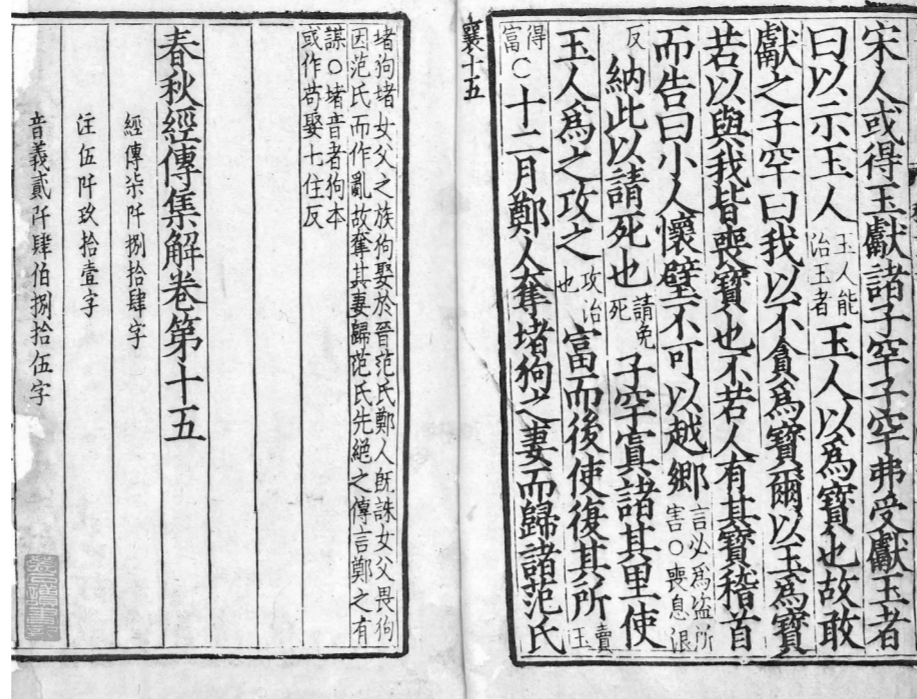 宋人或得玉獻諸子罕子罕弗受獻玉者
曰以示玉人玉人能治玉者玉人以爲寶也故敢
獻之子罕曰我以不貪爲寶爾以玉爲寶
若以與我皆喪寶也不若人有其寶稽首
而告曰小人懷璧不可以越鄉言必爲盗所害○喪息浪
反納此以請死也請免死子罕寘諸其里使
玉人爲之攻之攻治也富而後使復其所賣玉
得富○十二月鄭人奪堵狗之妻而歸諸范氏
襄十五
堵狗堵女父之族狗娶於晉范氏鄭人旣誅女父畏狗
因范氏而作亂故奪其妻歸范氏先絕之傳言鄭之有
謀○堵音者狗本
或作苟娶七住反
春秋經傳集解卷第十五
經傳柒阡捌拾肆字
注伍阡玖拾壹字
音義貳阡肆伯捌拾伍字